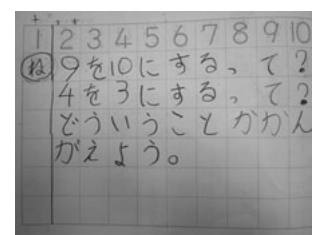 1 2 3 4 5 6 7 8 9 10
ね 9を10にする、て?
4を3にする、て?
どういうことかかん
がえよう。